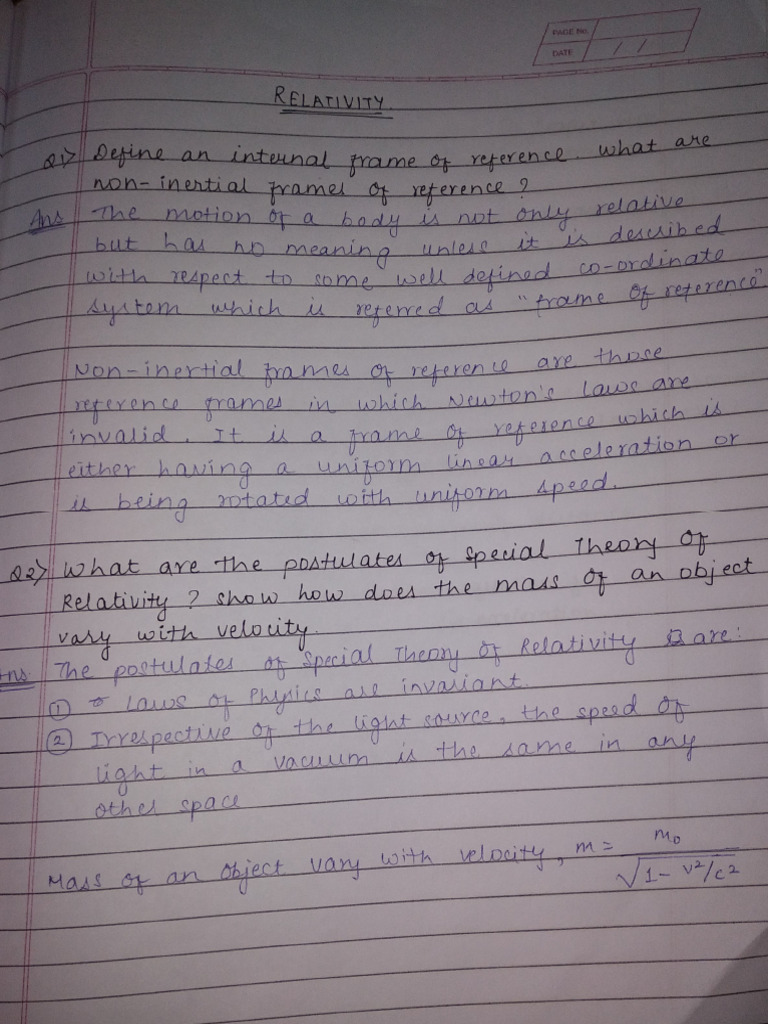 PAGE No.
DATE / /
RELATIVITY.
Q1> Define an internal frame of reference. What are
non-inertial frames of reference?
Ans The motion of a body is not only relative
but has no meaning unless it is described
with respect to some well defined co-ordinate
system which is referred as "frame of reference"
Non-inertial frames of reference are those
reference frames in which Newton's laws are
invalid. It is a frame of reference which is
either having a uniform linear acceleration or
is being rotated with uniform speed.
Q2> What are the postulates of Special Theory of
Relativity? Show how does the mass of an object
vary with velocity.
Ans The postulates of Special Theory of Relativity are:
① Laws of Physics are invariant.
② Irrespective of the light source, the speed of
light in a vacuum is the same in any
other space
Mass of an object vary with velocity, m = m₀ / √1 - v²/c²